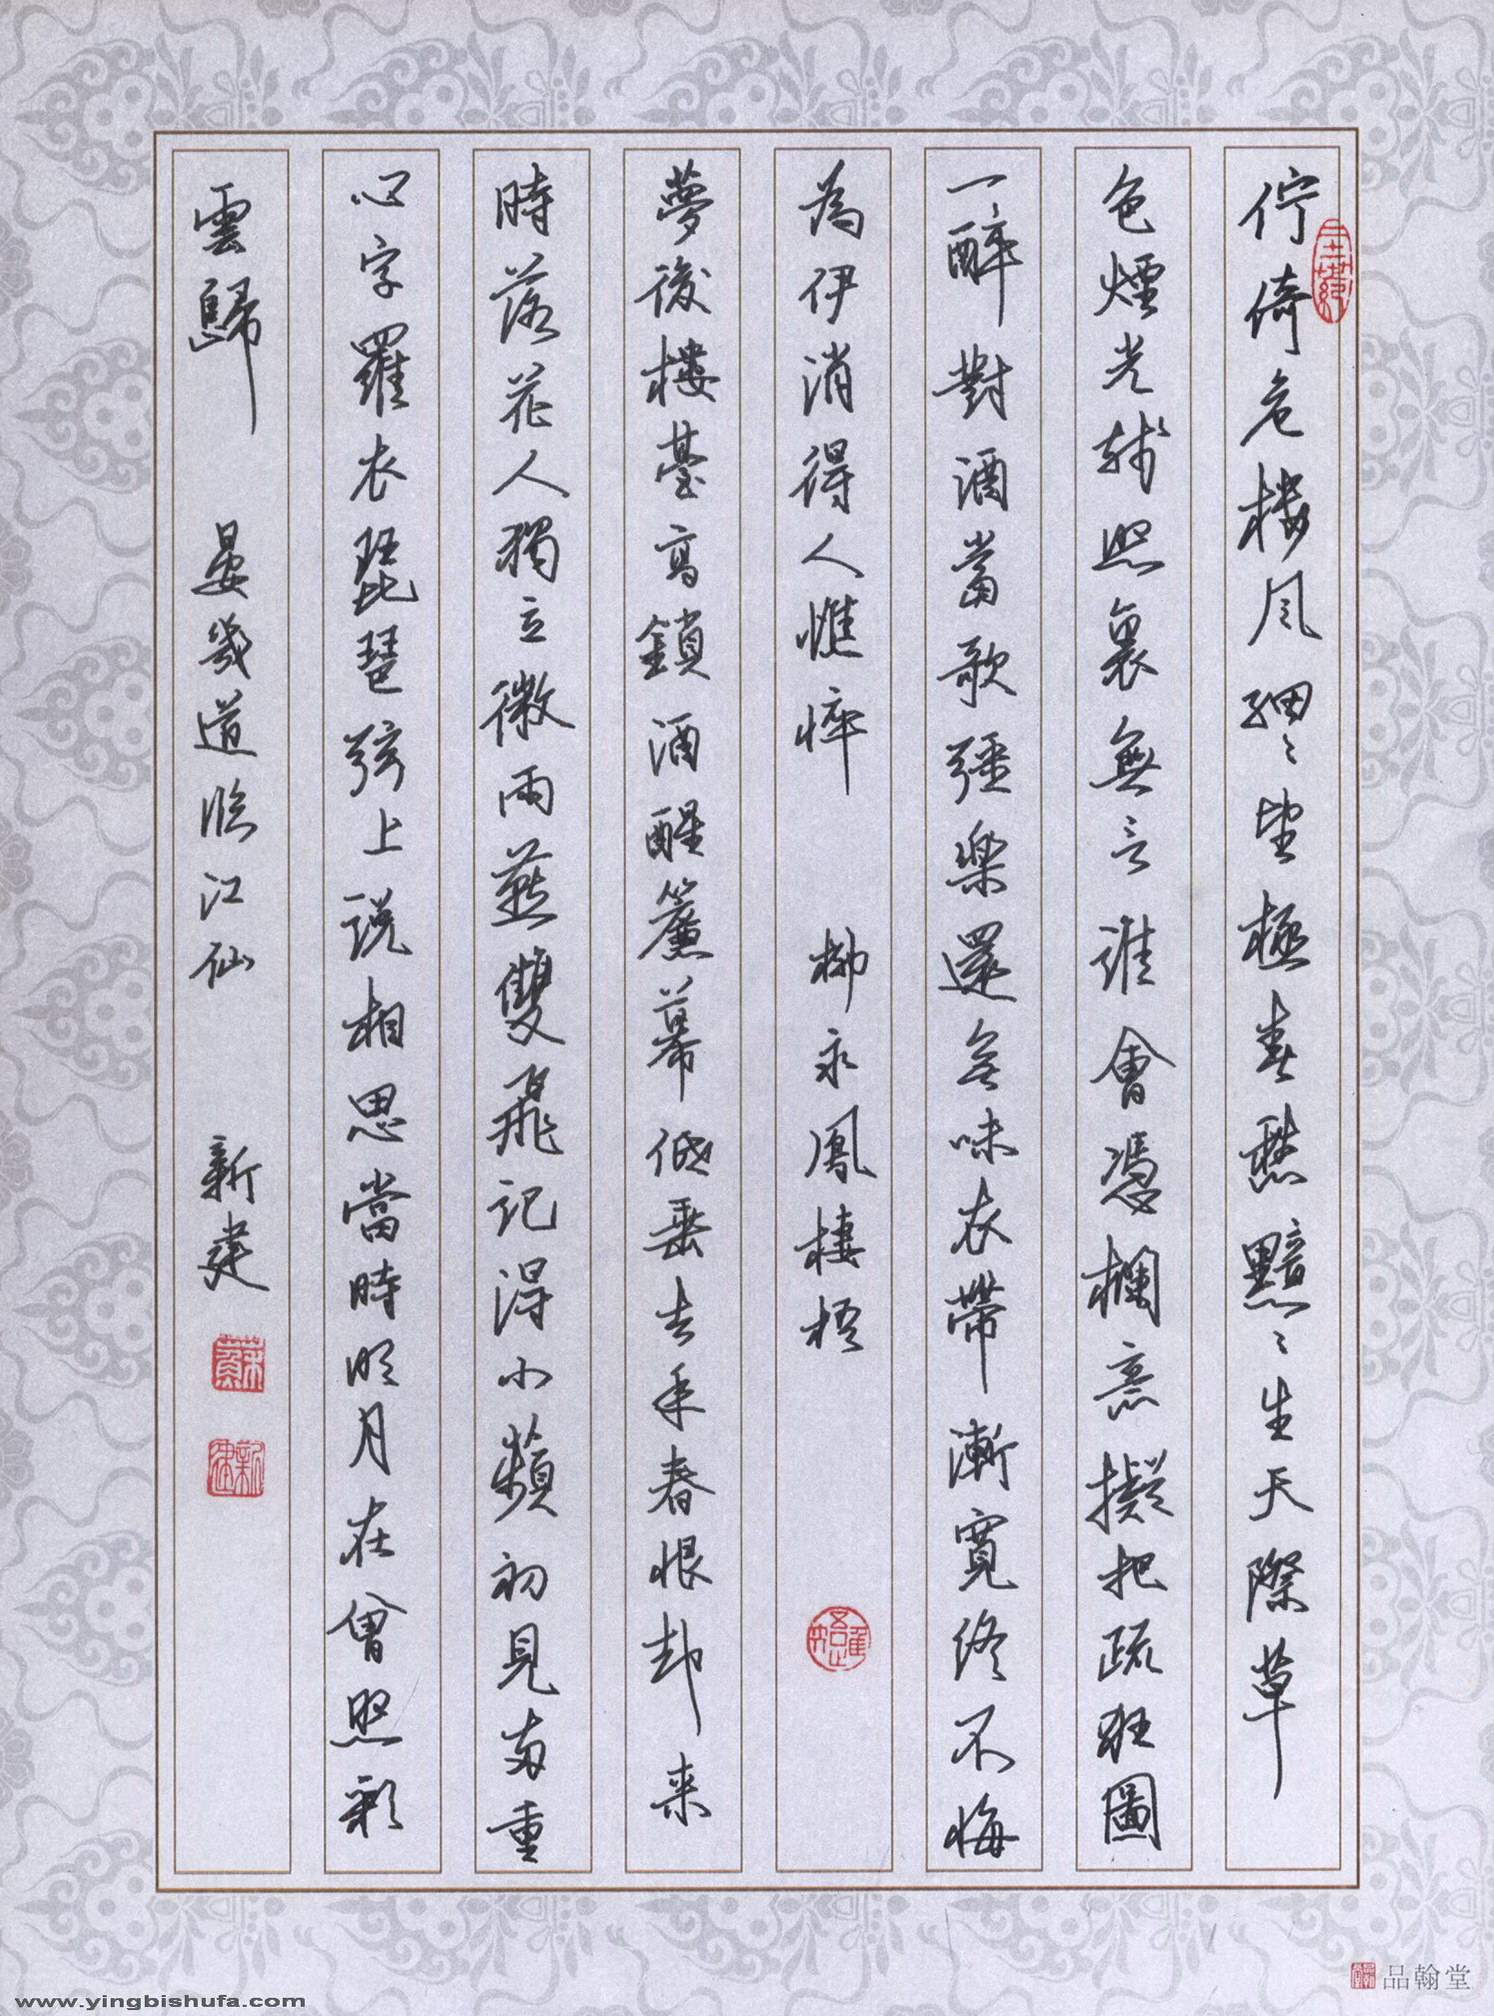 佇倚危楼风细々望極春愁黯々生天際草
色煙光残照裏無言谁會憑欄意擬把疏狂圖
一醉對酒當歌强樂還無味衣帶漸寬终不悔
為伊消得人憔悴 柳永鳳棲梧
夢後樓臺高鎖酒醒簾幕低垂去年春恨却来
時落花人獨立微雨燕雙飛记得小蘋初見两重
心字羅衣琵琶弦上说相思當時明月在曾照彩
雲歸 晏幾道临江仙 新建
品翰堂
www.yingbishufa.com